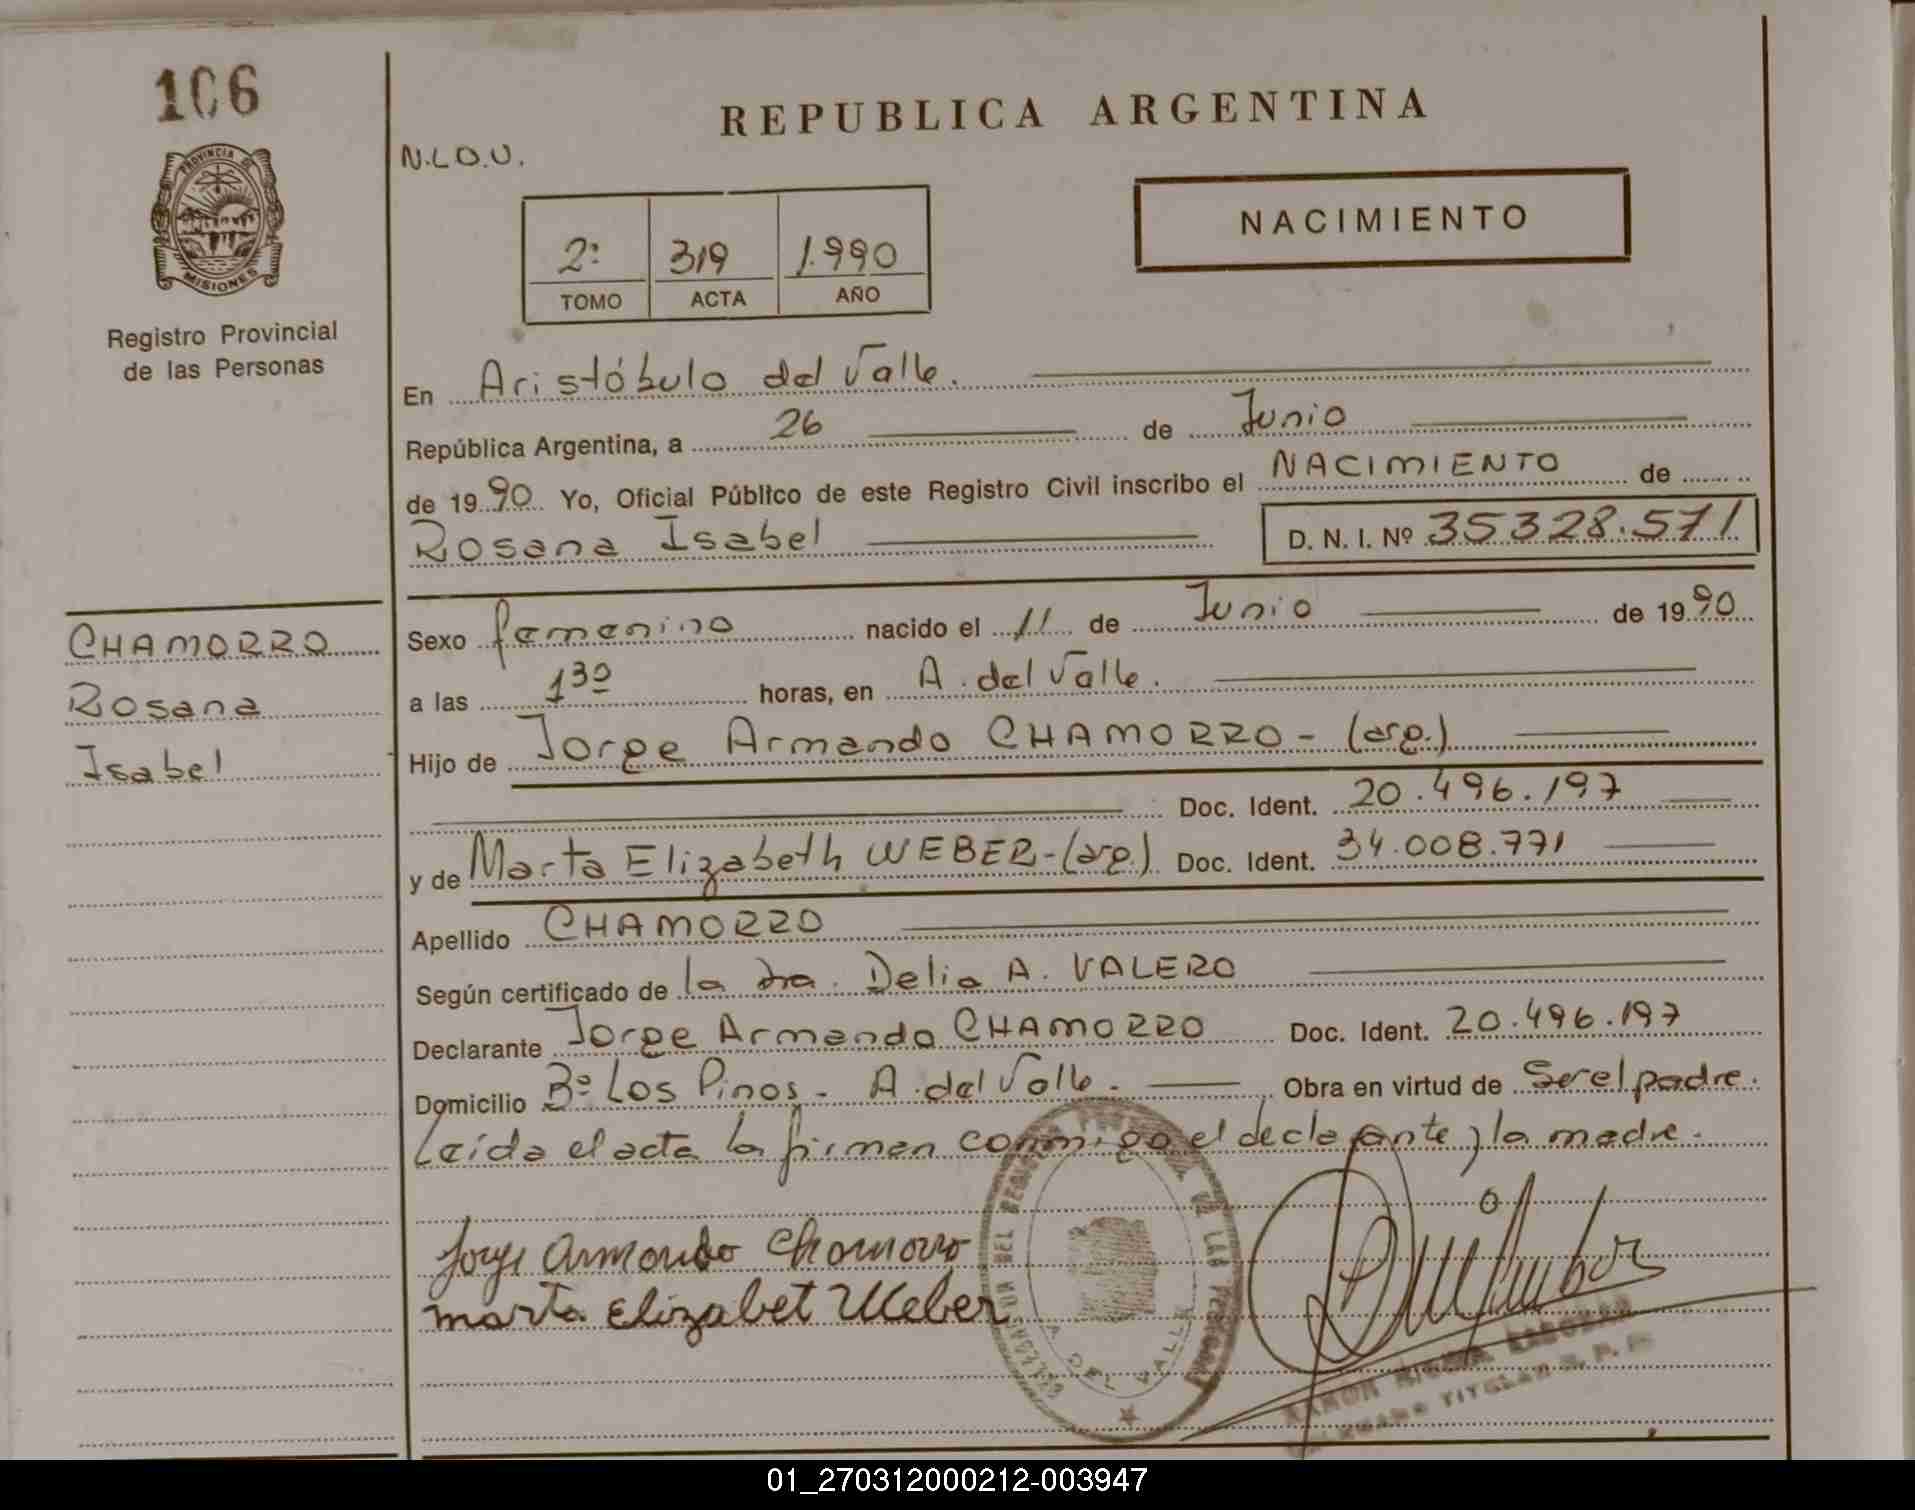 106
PROVINCIA DE
MISIONES
Registro Provincial
de las Personas
CHAMORRO
Rosana
Isabel
REPUBLICA ARGENTINA
N.L.O.U.
NACIMIENTO
2º 319 1.990
TOMO ACTA AÑO
En Aristóbulo del Valle.
República Argentina, a 26 de Junio
de 1990 Yo, Oficial Público de este Registro Civil inscribo el NACIMIENTO de
Rosana Isabel D. N. I. Nº 35328.571
Sexo femenino nacido el 11 de Junio de 1990
a las 1 30 horas, en A. del Valle.
Hijo de Jorge Armando CHAMORRO - (arg.)
Doc. Ident. 20.496.197
y de Marta Elizabeth WEBER - (arg.) Doc. Ident. 34.008.771
Apellido CHAMORRO
Según certificado de la dra. Delia A. VALERO
Declarante Jorge Armando CHAMORRO Doc. Ident. 20.496.197
Domicilio Bº Los Pinos - A. del Valle. Obra en virtud de Ser el padre.
Leída el acta la firman conmigo el declarante y la madre.
Jorge Armando Chamorro
marta Elizabet Weber
A. DEL VALLE
01_270312000212-003947